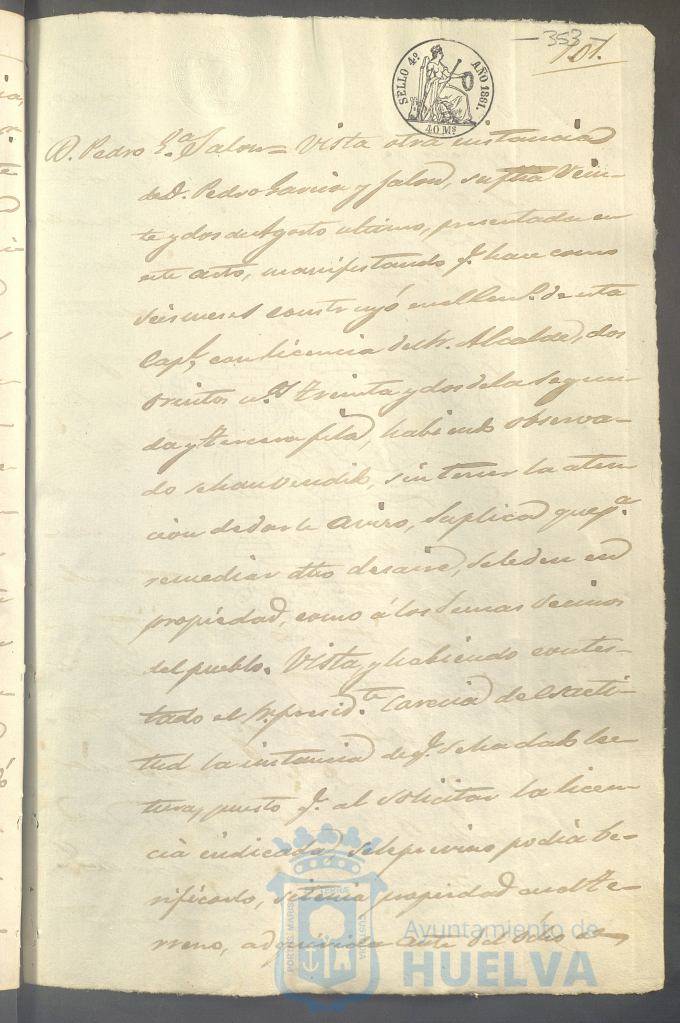 — 353 —
101.
SELLO 4º AÑO 1861.
40 Mˢ
D. Pedro Gª Jalon = Vista otra instancia
de D. Pedro Garcia y Jalon, su fha Vein-
te y dos de Agosto ultimo, presentada en
este acto, manifestando q.e hace como
seis meses construyó en el Cemº de esta
Capl, con licencia del Sr. Alcalde, dos
nos treinta y dos de la Segun-
da y tercera fila, habiendo observa-
do se han vendido, sin tener la aten-
cion de darle aviso, Suplica que pª
remediar dho desaire, se le den en
propiedad, como á los demas vecinos
del pueblo. Vista, y habiendo contes-
tado el Sr. presidte carecia de esacti-
tud la instancia de q.e se ha dado lec-
tura, puesto q.e al solicitar la licen-
cia indicada, se le previno podia be-
rificarlo, si tenia propiedad en el te-
rreno, adquirida ante del
Ayuntamiento de
HUELVA
PORTUS MARIS ET TERRAE CUSTODIA